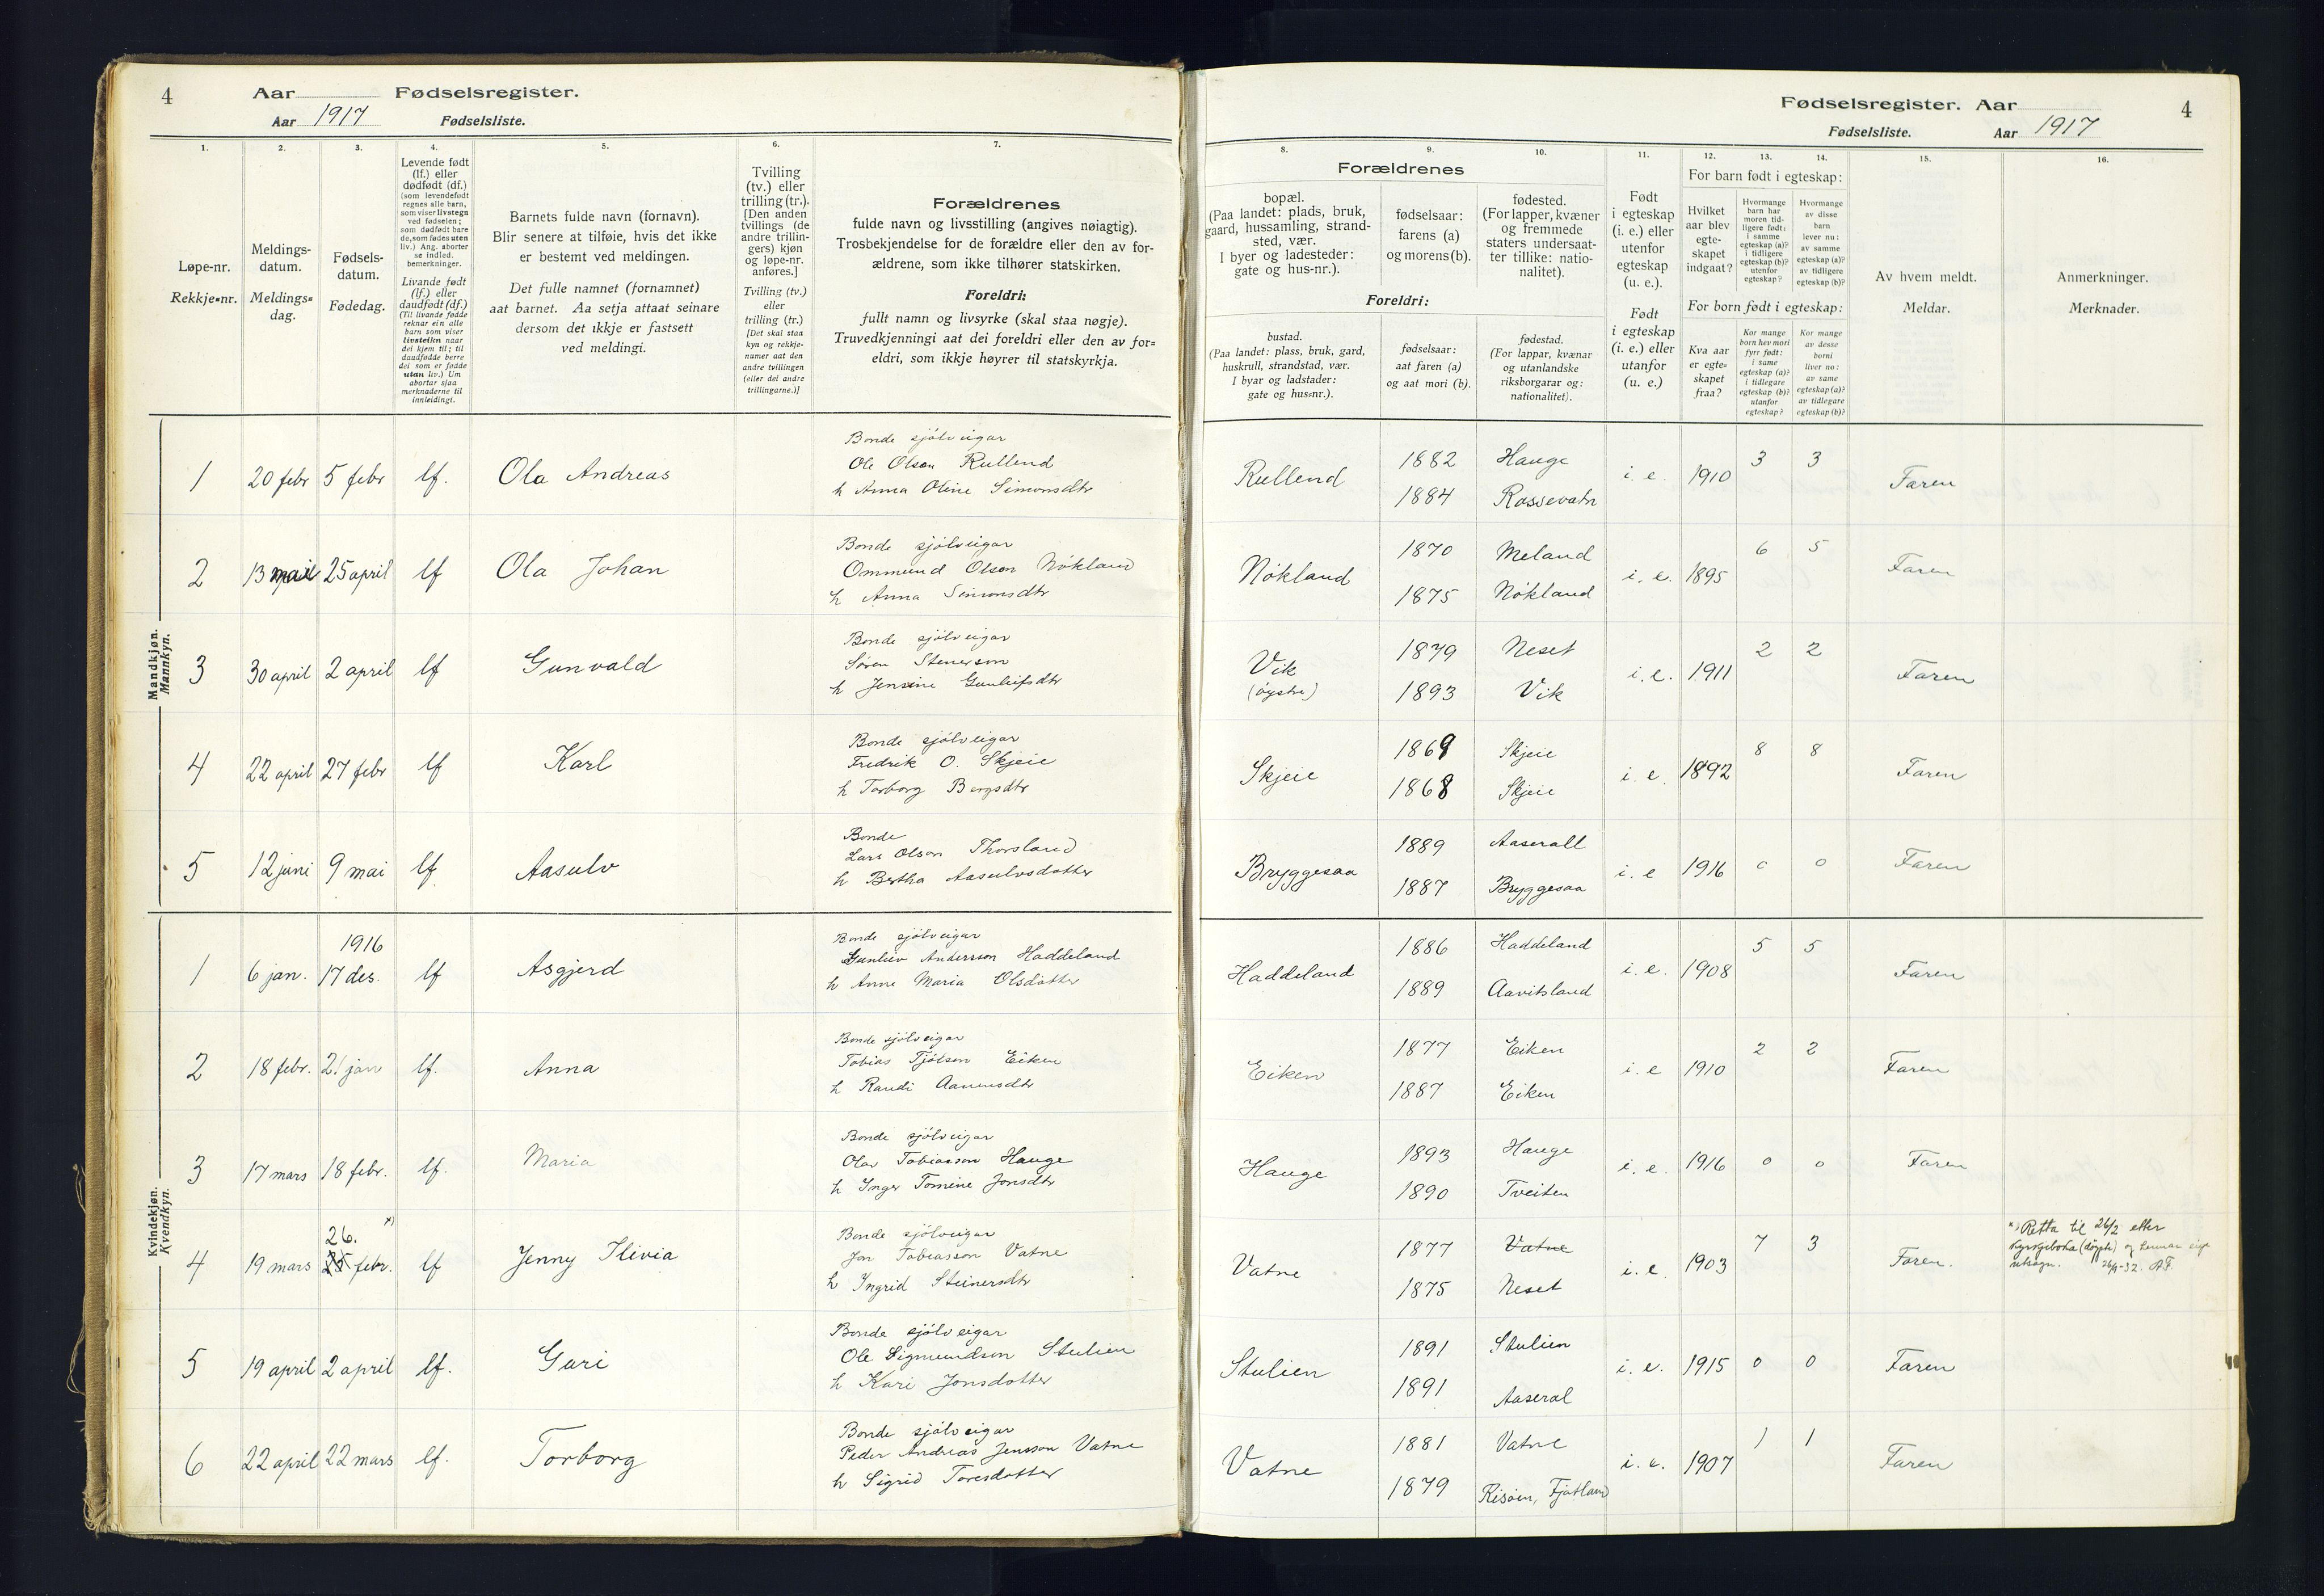 4
Aar
Fødselsregister.
Aar 1917
Fødselsliste.
1.
2.
3.
4.
5.
6.
7.
Løpe-nr.
Rekkje-nr.
Meldings-
datum.
Meldings-
dag.
Fødsels-
datum.
Fødedag.
Levende født
(lf.) eller
dødfødt (df.)
(som levendefødt
regnes alle barn,
som viser livstegn
ved fødselen;
som dødfødt bare
de, som fødes uten
liv.) Ang. aborter
se indled.
bemerkninger.
Livande født
(lf.) eller
daudfødt (df.)
(Til livande fødde
reknar ein alle
barn som viser
livsteikn naar
dei kjem til; til
daudfødde berre
dei som er fødde
utan liv.) Um
abortar sjaa
merknaderne til
innleidingi.
Barnets fulde navn (fornavn).
Blir senere at tilføie, hvis det ikke
er bestemt ved meldingen.
Det fulle namnet (fornamnet)
aat barnet. Aa setja attaat seinare
dersom det ikkje er fastsett
ved meldingi.
Tvilling
(tv.) eller
trilling (tr.).
[Den anden
tvillings (de
andre trillin-
gers) kjøn
og løpe-nr.
anføres.]
Tvilling (tv.)
eller
trilling (tr.)
[Det skal staa
kyn og rekkje-
numer aat den
andre tvillingen
(eller dei andre
trillingarne.)]
Forældrenes
fulde navn og livsstilling (angives nøiagtig).
Trosbekjendelse for de forældre eller den av for-
ældrene, som ikke tilhører statskirken.
Foreldri:
fullt namn og livsyrke (skal staa nøgje).
Truvedkjenningi aat dei foreldri eller den av for-
eldri, som ikkje høyrer til statskyrkja.
Mandkjøn.
Mannkyn.
1 20 febr 5 febr lf. Ola Andreas
Bonde sjølveigar
Ole Olsen Rullend
h Anna Oline Simonsdtr
2 13 mai 25 april lf Ola Johan
Bonde sjølveigar
Ommund Olsen Nökland
h Anna Simonsdtr
3 30 april 2 april lf Gunvald
Bonde sjølveigar
Søren Stenerson
h Jensine Gunleifsdtr
4 22 april 27 febr lf Karl
Bonde sjølveigar
Fredrik O. Skjeie
h Torborg Bergsdtr
5 12 juni 9 mai lf Aasulv
Bonde
Lars Olson Thorsland
h Bertha Aasulvsdotter
Kvindekjøn.
Kvendkyn.
1916
1 6 jan. 17 des. lf Asgjerd
Bonde sjølveigar
Gunleiv Andersson Haddeland
h Anne Maria Olsdotter
2 18 febr. 21 jan lf. Anna
Bonde sjølveigar
Tobias Tjølson Eiken
h Randi Aanensdtr
3 17 mars 18 febr. lf. Maria
Bonde sjølveigar
Olav Tobiasson Hauge
h Inger Tomine Jonsdtr
26. x)
4 19 mars 25 febr. lf Jenny Ilivia
Bonde sjølveigar
Jon Tobiasson Vatne
h Ingrid Steinersdtr
5 19 april 2 april lf. Guri
Bonde sjølveigar
Ole Sigmundson Stulien
h Kari Jonsdotter
6 22 april 22 mars lf. Torborg
Bonde sjølveigar
Peder Andreas Jensson Vatne
h Sigrid Toresdotter
Fødselsregister. Aar
4
Fødselsliste.
Aar 1917
8.
9.
10.
11.
12.
13.
14.
15.
16.
Forældrenes
bopæl.
(Paa landet: plads, bruk,
gaard, hussamling, strand-
sted, vær.
I byer og ladesteder:
gate og hus-nr.).
fødselsaar:
farens (a)
og morens (b).
fødested.
(For lapper, kvæner
og fremmede
staters undersaat-
ter tillike: natio-
nalitet).
Foreldri:
bustad.
(Paa landet: plass, bruk, gard,
huskrull, strandstad, vær.
I byar og ladstader:
gate og hus-nr.).
fødselsaar:
aat faren (a)
og aat mori (b).
fødestad.
(For lappar, kvænar
og utanlandske
riksborgarar og:
nationalitet).
Født
i egteskap
(i. e.) eller
utenfor
egteskap
(u. e.).
Født
i egteskap
(i. e.) eller
utanfor
(u. e.)
For barn født i egteskap:
Hvilket
aar blev
egte-
skapet
indgaat?
Hvormange
barn har
moren tid-
ligere født:
i samme
egteskap (a)?
i tidligere
egteskap (b)?
utenfor
egteskap?
Hvormange
av disse
barn
lever nu:
av samme
egteskap (a)?
av tidligere
egteskap (b)?
For born født i egteskap:
Kva aar
er egte-
skapet
fraa?
Kor mange
born hev mori
fyrr født:
i same
egteskap (a)?
i tidlegare
egteskap (b)?
utanfor
egteskap?
Kor mange
av desse
borni
liver no:
av same
egteskap (a)?
av tidlegare
egteskap (b)?
Av hvem meldt.
Meldar.
Anmerkninger.
Merknader.
Rullend 1882 Hauge i. e. 1910 3 3 Faren
1884 Rossevatn
Nökland 1870 Meland i. e. 1895 6 5 Faren
1875 Nökland
Vik 1879 Neset i. e. 1911 2 2 Faren
(öystre) 1893 Vik
Skjeie 1869 Skjeie i. e. 1892 8 8 Faren
1868 Skjeie
Bryggesaa 1889 Aaserall i. e 1916 0 0 Faren
1887 Bryggesaa
Haddeland 1886 Haddeland i. e. 1908 5 5 Faren
1889 Aavitsland
Eiken 1877 Eiken i. e 1910 2 2 Faren
1887 Eiken
Hauge 1893 Hauge i. e. 1916 0 0 Faren
1890 Tveiten
Vatne 1877 Vatne i. e. 1903 7 3 Faren.
1875 Neset
x) Retta til 26/2 etter
kyrkjeboka (döypte) og hennar eige
utsagn. 26/9-32. AF.
Stulien 1891 Stulien i. e. 1915 0 0 Faren
1891 Aaseral
Vatne 1881 Vatne i. e. 1907 1 1 Faren
1879 Risöen, Fjotland